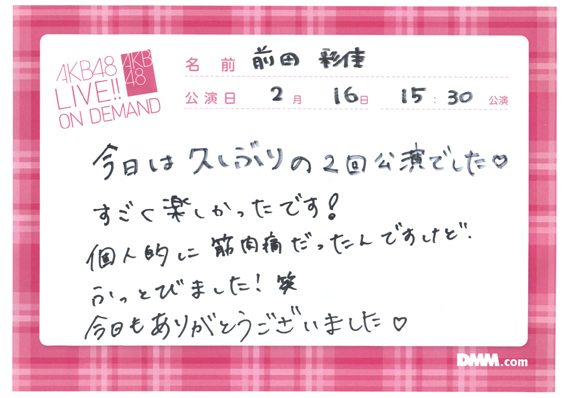 AKB48
LIVE!!
ON DEMAND
AKB
48
名前 前田 彩佳
公演日 2月 16日 15:30 公演
今日は久しぶりの2回公演でした♡
すごく楽しかったです!
個人的に筋肉痛だったんですけど、
ふっとびました!笑
今日もありがとうございました♡
DMM.com